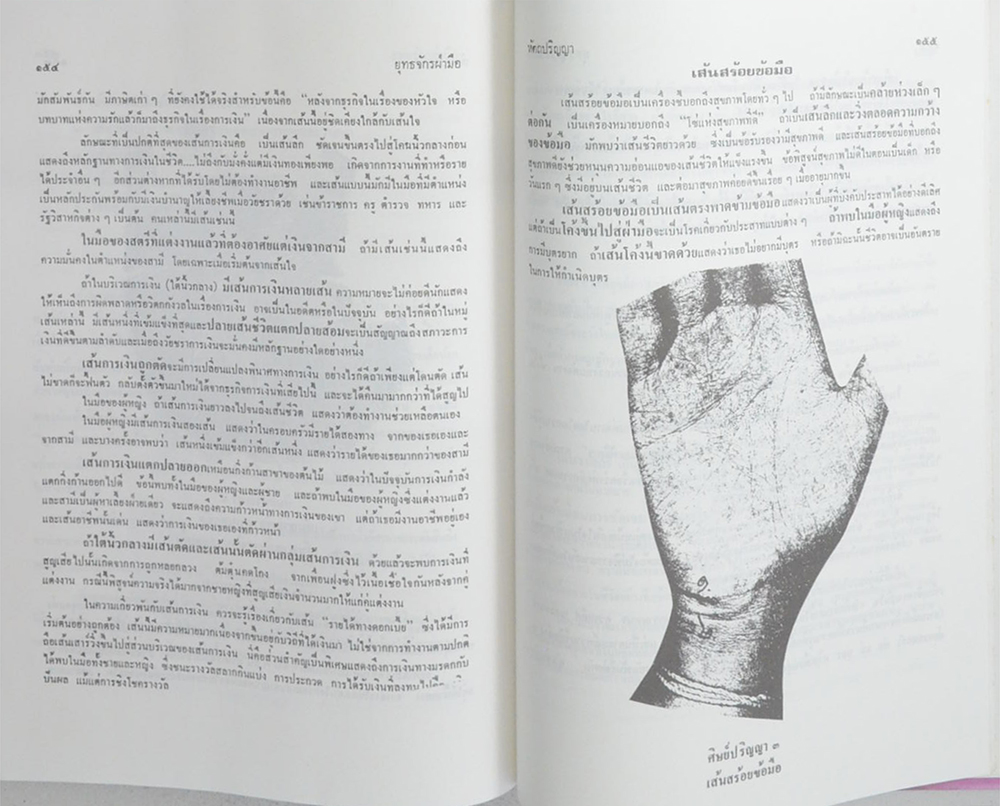 ๑๕๔
ยุทธจักรฝ่ามือ
มักสัมพันธ์กัน มีภาษิตเก่า ๆ ที่ยังคงใช้ได้จริงสำหรับข้อนี้คือ “หลังจากธุรกิจในเรื่องของหัวใจ หรือ
บทบาทแห่งความรักแล้วก็มาถึงธุรกิจในเรื่องการเงิน” เนื่องจากเส้นนี้อยู่ชิดเคียงใกล้กับเส้นใจ
ลักษณะที่เป็นปกติที่สุดของเส้นการเงินคือ เป็นเส้นลึก ชัดเจนขึ้นตรงไปสู่โคนนิ้วกลางก่อน
แสดงถึงหลักฐานทางการเงินในชีวิต....ไม่ถึงกับมั่งคั่งแต่มีเงินทองเพียงพอ เกิดจากการงานที่ทำหรือราย
ได้ประจำอื่น ๆ อีกส่วนต่างหากที่ได้รับโดยไม่ต้องทำงานอาชีพ และเส้นแบบนี้มักมีในมือที่มีตำแหน่ง
เป็นหลักประกันพร้อมกับมีเงินบำนาญให้เลี้ยงชีพเมื่อวัยชราด้วย เช่นข้าราชการ ครู ตำรวจ ทหาร และ
รัฐวิสาหกิจต่าง ๆ เป็นต้น คนเหล่านี้มีเส้นเช่นนี้
ในมือของสตรีที่แต่งงานแล้วที่ต้องอาศัยแต่เงินจากสามี ถ้ามีเส้นเช่นนี้แสดงถึง
ความมั่นคงในตำแหน่งของสามี โดยเฉพาะเมื่อเริ่มต้นจากเส้นใจ
ถ้าในบริเวณการเงิน (ใต้นิ้วกลาง) มีเส้นการเงินหลายเส้น ความหมายจะไม่ค่อยดีนักแสดง
ให้เห็นถึงการผิดพลาดหรือวิตกกังวลในเรื่องการเงิน อาจเป็นในอดีตหรือในปัจจุบัน อย่างไรก็ดีถ้าในหมู่
เส้นเหล่านี้ มีเส้นหนึ่งที่เข้มแข็งที่สุดและปลายเส้นชีวิตแตกปลายส้อมจะเป็นสัญญาณถึงสภาวะการ
เงินที่ดีขึ้นตามลำดับและเมื่อถึงวัยชราการเงินจะมั่นคงมีหลักฐานอย่างใดอย่างหนึ่ง
เส้นการเงินถูกตัดจะมีการเปลี่ยนแปลงพินาศทางการเงิน อย่างไรก็ดีถ้าเพียงแต่โดนตัด เส้น
ไม่ขาดก็จะฟื้นตัว กลับตั้งตัวขึ้นมาใหม่ได้จากธุรกิจการเงินที่เสียไป และจะได้คืนมามากกว่าที่ได้สูญไป
ในมือของผู้หญิง ถ้าเส้นการเงินยาวลงไปจนถึงเส้นชีวิต แสดงว่าต้องทำงานช่วยเหลือตนเอง
ในมือผู้หญิงมีเส้นการเงินสองเส้น แสดงว่าในครอบครัวมีรายได้สองทาง จากของเธอเองและ
จากสามี และบางครั้งอาจพบว่า เส้นหนึ่งเข้มแข็งกว่าอีกเส้นหนึ่ง แสดงว่ารายได้ของเธอมากกว่าของสามี
เส้นการเงินแตกปลายออกเหมือนกิ่งก้านสาขาของต้นไม้ แสดงว่าในปัจจุบันการเงินกำลัง
แตกกิ่งก้านออกไปดี ข้อนี้พบทั้งในมือของผู้หญิงและผู้ชาย และถ้าพบในมือของผู้หญิงซึ่งแต่งงานแล้ว
และสามีเป็นผู้หาเลี้ยงฝ่ายเดียว จะแสดงถึงความก้าวหน้าทางการเงินของเขา แต่ถ้าเธอมีงานอาชีพอยู่เอง
และเส้นอาชีพนั้นเด่น แสดงว่าการเงินของเธอเองที่ก้าวหน้า
ถ้าใต้นิ้วกลางมีเส้นตัดและเส้นนั้นตัดผ่านกลุ่มเส้นการเงิน ด้วยแล้วจะพบการเงินที่
สูญเสียไปนั้นเกิดจากการถูกหลอกลวง ต้มตุ๋นคดโกง จากเพื่อนฝูงซึ่งไว้เนื้อเชื่อใจกันหลังจากคู่
แต่งงาน กรณีนี้พิสูจน์ความจริงได้มากจากชายหญิงที่สูญเสียเงินจำนวนมากให้แก่คู่แต่งงาน
ในความเกี่ยวพันกับเส้นการเงิน ควรจะรู้เรื่องเกี่ยวกับเส้น “รายได้ทางดอกเบี้ย” ซึ่งได้มีการ
เริ่มต้นอย่างถูกต้อง เส้นนี้มีความหมายมากเนื่องจากขึ้นอยู่กับวิถีที่ได้เงินมา ไม่ใช่จากการทำงานตามปกติ
ถือเส้นเสาร์วิ่งขึ้นไปสู่ส่วนบริเวณของเส้นการเงิน นี่คือส่วนสำคัญเป็นพิเศษแสดงถึงการเงินทางมรดกกับ
ได้พบในมือทั้งชายและหญิง ซึ่งชนะรางวัลสลากกินแบ่ง การประกวด การได้รับเงินที่ลงทุนไป
ปันผล แม้แต่การชิงโชครางวัล
หัตถปริญญา
๑๕๕
เส้นสร้อยข้อมือ
เส้นสร้อยข้อมือเป็นเครื่องชี้บอกถึงสุขภาพโดยทั่ว ๆ ไป ถ้ามีลักษณะเป็นคล้ายห่วงเล็ก ๆ
ต่อกัน เป็นเครื่องหมายบอกถึง “โซ่แห่งสุขภาพที่ดี” ถ้าเป็นเส้นลึกและวิ่งตลอดความกว้าง
ของข้อมือ มักพบว่าเส้นชีวิตยาวด้วย ซึ่งเป็นข้อรับรองว่ามีสุขภาพที่ดี และเส้นสร้อยข้อมือที่บอกถึง
สุขภาพดียังช่วยหนุนความอ่อนแอของเส้นชีวิตให้แข็งแรงขึ้น ข้อพิสูจน์สุขภาพไม่ดีในตอนเป็นเด็ก หรือ
วันแรก ๆ ซึ่งมีอยู่บนเส้นชีวิต และต่อมาสุขภาพค่อยดีขึ้นเรื่อย ๆ เมื่ออายุมากขึ้น
เส้นสร้อยข้อมือเป็นเส้นตรงพาดข้ามข้อมือแสดงว่าเป็นผู้ที่บังคับประสาทได้อย่างดีเลิศ
แต่ถ้าเป็นโค้งขึ้นไปสู่ฝ่ามือจะเป็นโรคเกี่ยวกับประสาทแบบต่าง ๆ ถ้าพบในมือผู้หญิงแสดงถึง
การมีบุตรยาก ถ้าเส้นโค้งนี้ขาดด้วยแสดงว่าเธอไม่อยากมีบุตร หรือถ้ามีฉะนั้นชีวิตอาจเป็นอันตราย
ในการให้กำเนิดบุตร
ศิษย์ปริญญา ๓
เส้นสร้อยข้อมือ